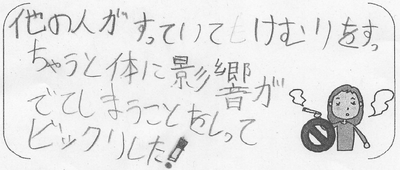 他の人がすっていてもけむりをすっ
ちゃうと体に影響が
でてしまうことをしって
ビックリした!